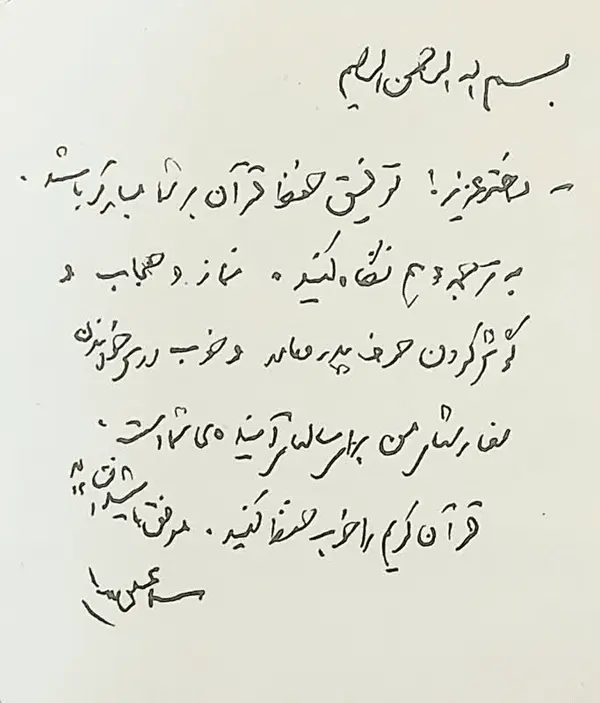 بسم الله الرحمن الرحیم
- دختر عزیز! توفیق حفظ قرآن بر شما مبارک باشد.
به ترجمه هم نگاه کنید. نماز و حجاب و
گوش کردن حرف پدر و مادر و خوب درس خواندن
سفارش من برای سالهای آینده‌ی شما است.
قرآن کریم را خوب حفظ کنید. موفق باشید